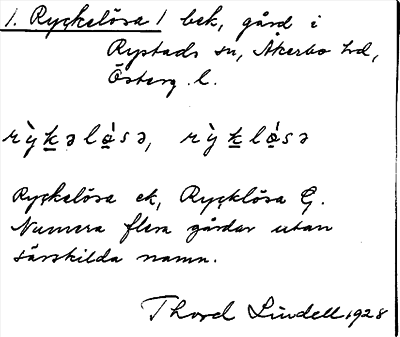 1. Ryckelösa / bek, gård i
Rystads sn, Åkerbo hd,
Österg. l.
rỳk̠əlǫ́sə, rỳk̠lǫ́sə
Ryckelösa ek, Rycklösa G.
Numera flera gårdar utan
särskilda namn.
Thord Lindell 1928